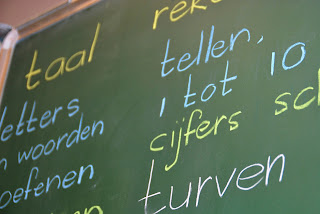 taal
letters
woorden
oefenen
tellen,
1 tot 10
cijfers
turven